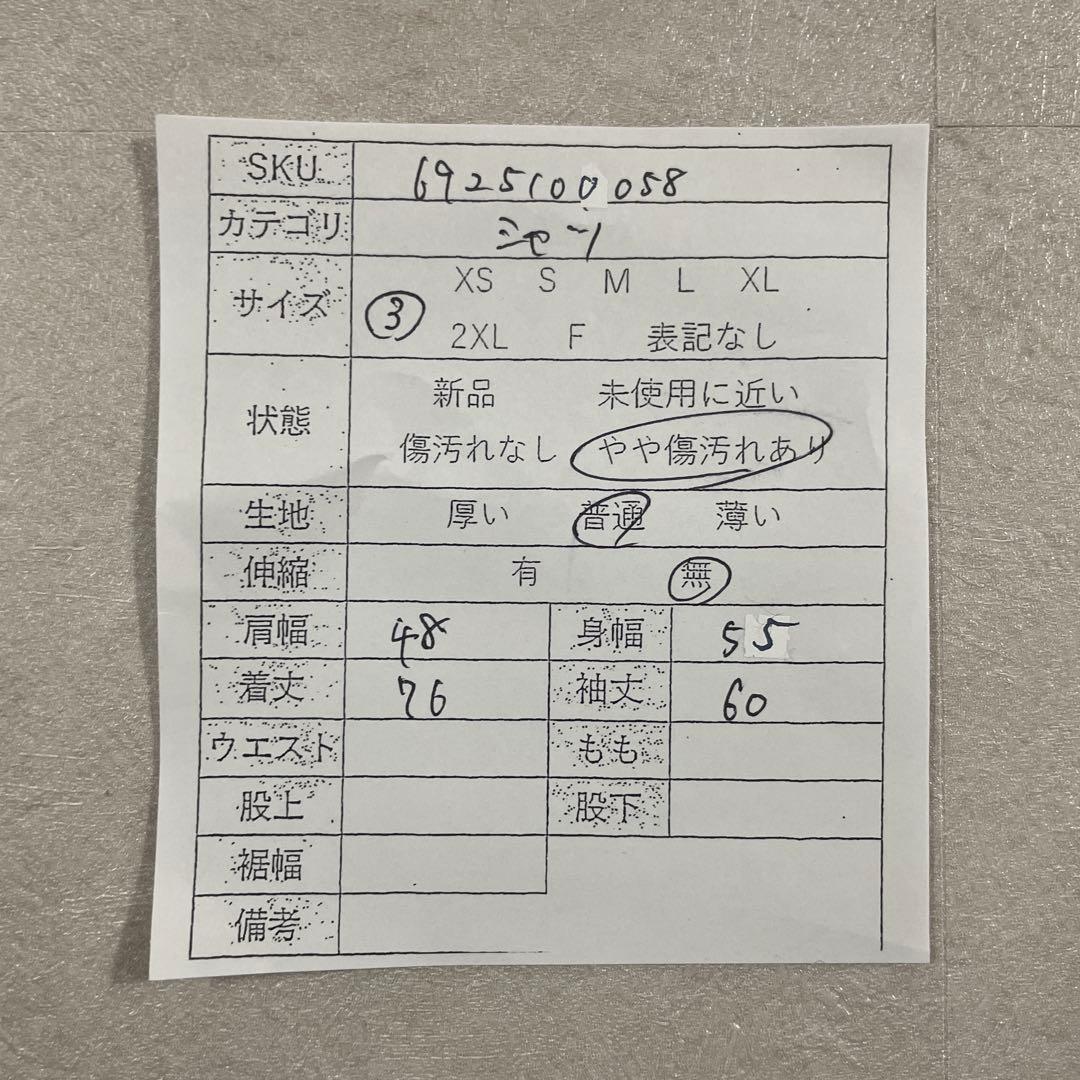 SKU 6925100058
カテゴリ シャツ
サイズ XS S M L XL
③ 2XL F 表記なし
状態 新品 未使用に近い
傷汚れなし やや傷汚れあり
生地 厚い 普通 薄い
伸縮 有 無
肩幅 48 身幅 55
着丈 76 袖丈 60
ウエスト もも
股上 股下
裾幅
備考